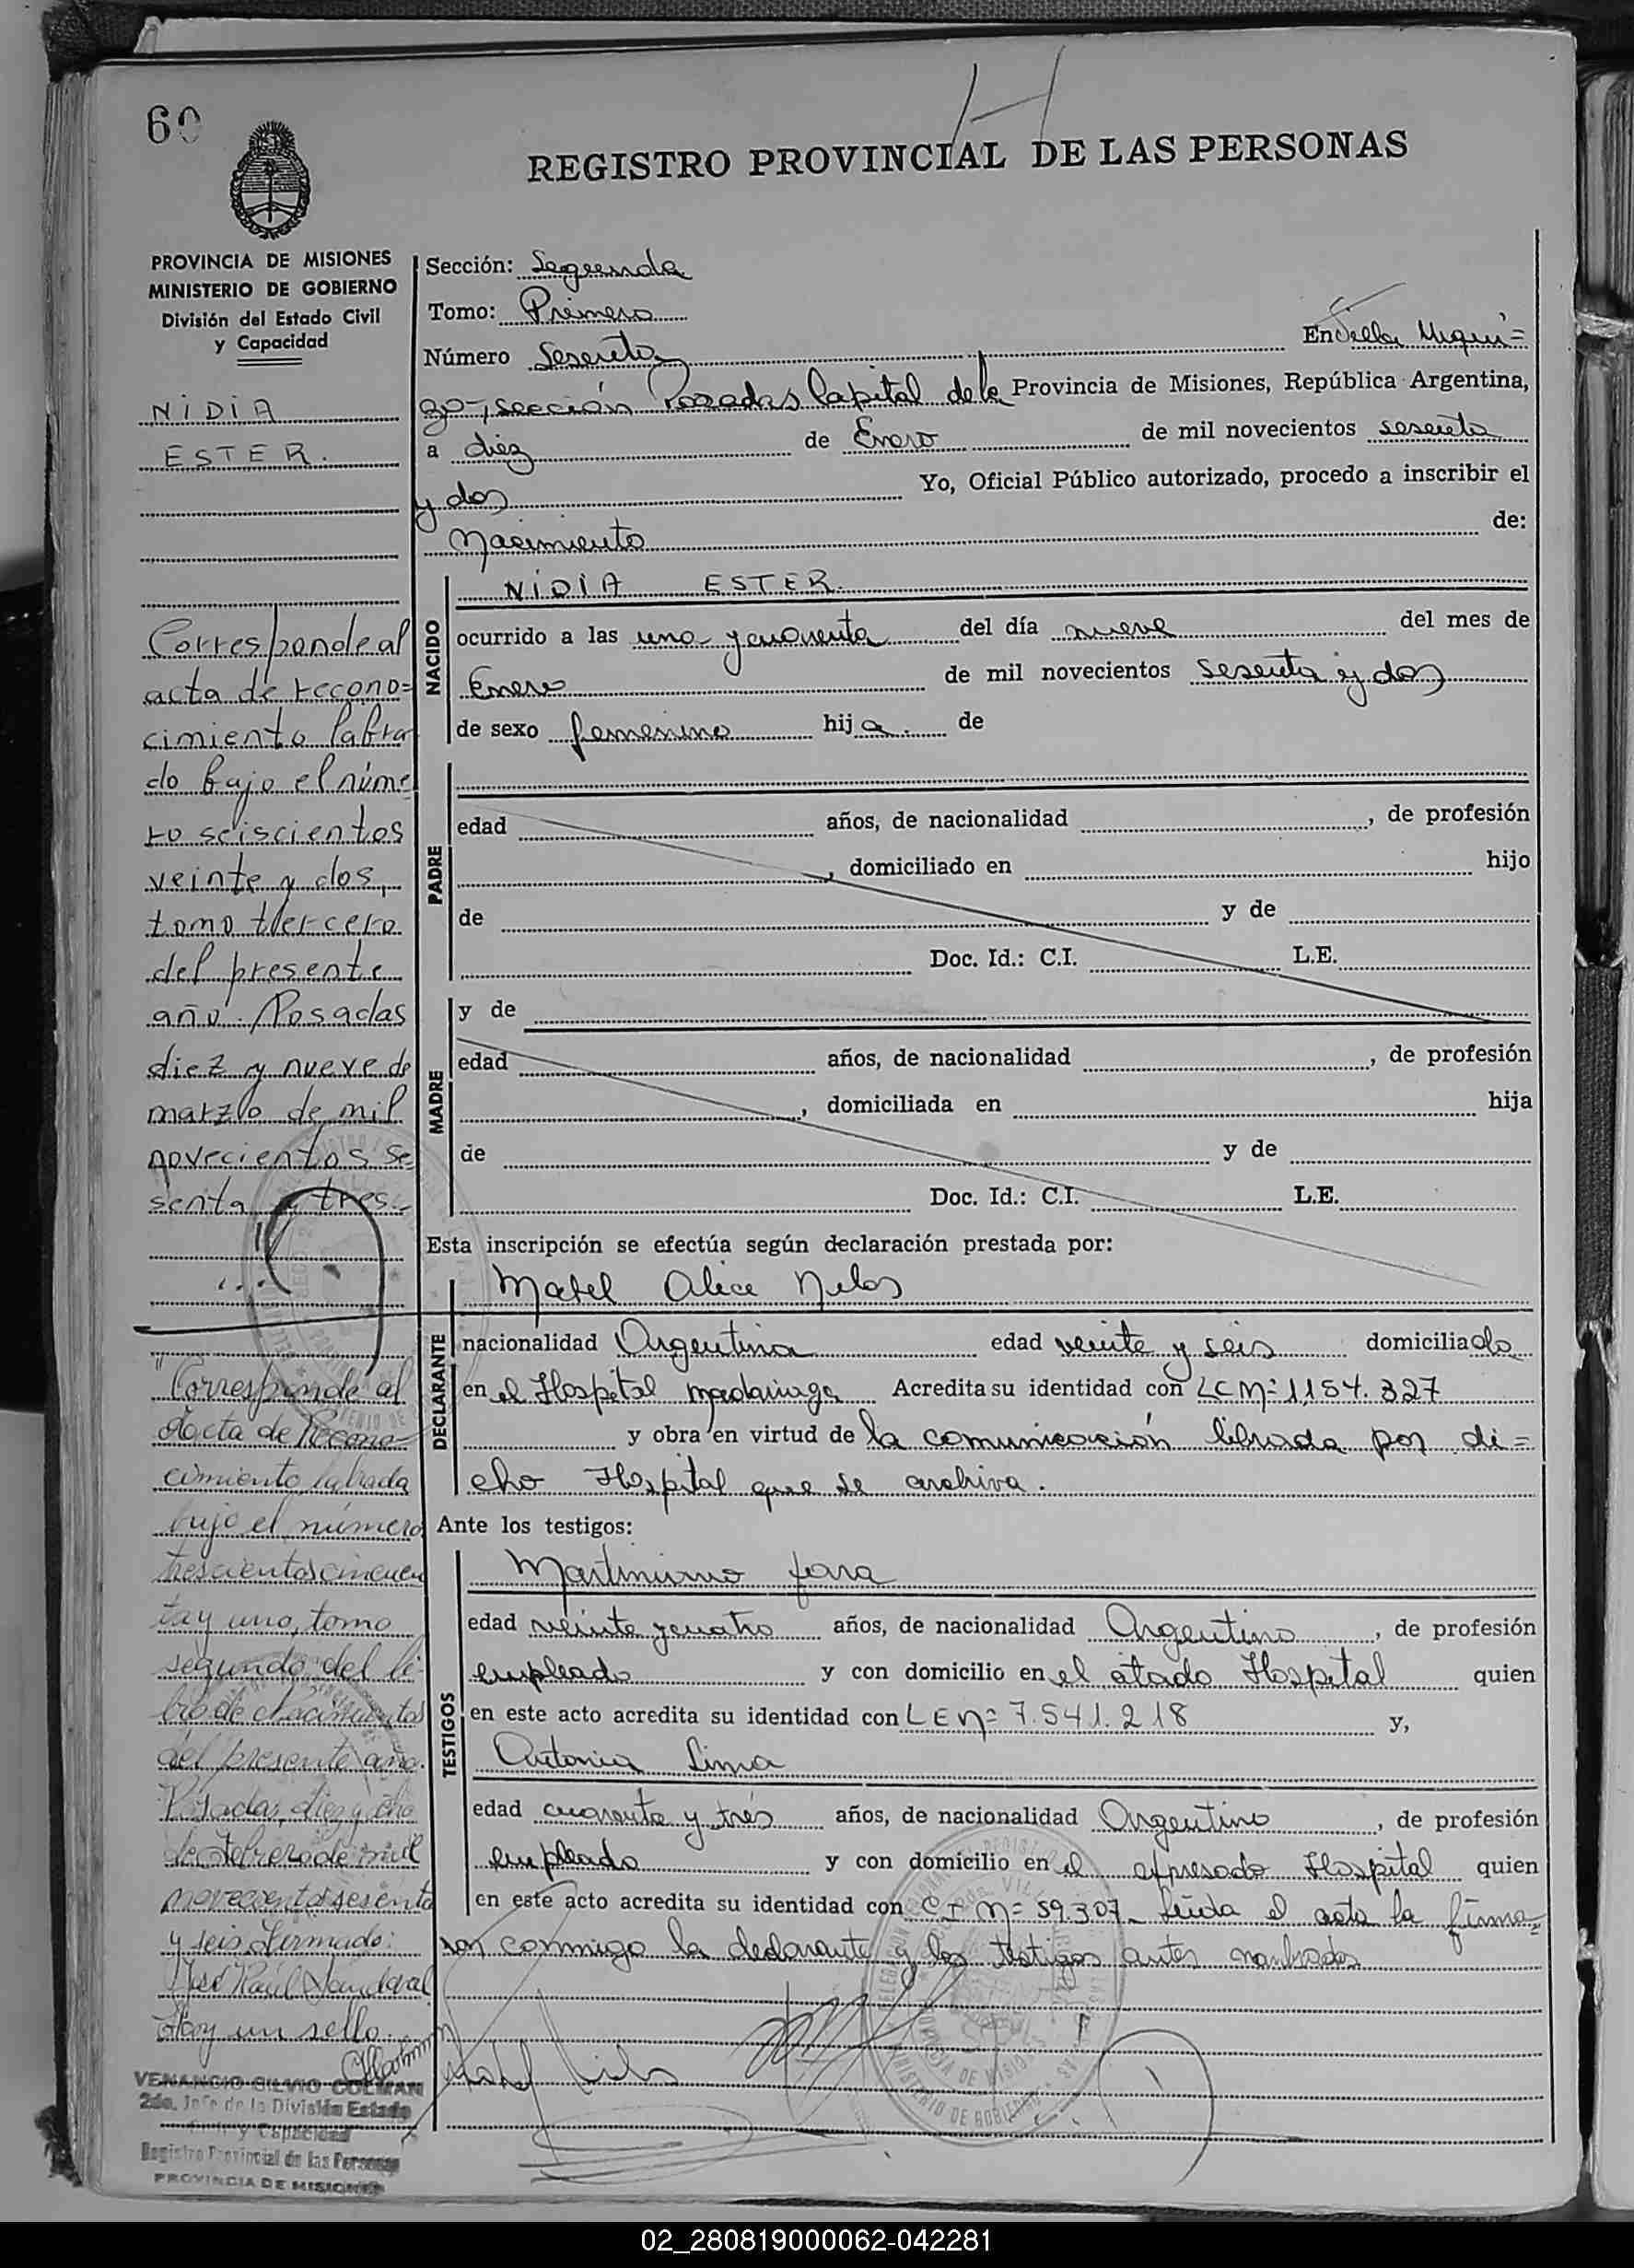 60
REGISTRO PROVINCIAL DE LAS PERSONAS
PROVINCIA DE MISIONES
MINISTERIO DE GOBIERNO
División del Estado Civil
y Capacidad
NIDIA
ESTER.
Corresponde al
acta de recono=
cimiento labra
do bajo el núme
ro seiscientos
veinte y dos,
tomo tercero
del presente
año. Posadas
diez y nueve de
marzo de mil
novecientos se
senta y tres.-
"Corresponde al
Acta de Recono-
cimiento labrada
bajo el número
trescientos cincuen
ta y uno, tomo
segundo del li-
bro de Nacimientos
del presente año.
Posadas, diez y ocho
de Febrero de mil
novecientos sesenta
y seis. Firmado:
José Raúl Sandoval
Hay un sello.
VENANCIO SILVIO COLMAN
2do. Jefe de la División Estado
Civil y Capacidad
Registro Provincial de las Personas
PROVINCIA DE MISIONES
Sección: Segunda
Tomo: Primero
Número Sesenta En Villa Urqui=
za-, sección Posadas Capital de la Provincia de Misiones, República Argentina,
a diez de Enero de mil novecientos sesenta
y dos Yo, Oficial Público autorizado, procedo a inscribir el
Nacimiento de:
NACIDO
NIDIA ESTER.
ocurrido a las una y cuarenta del día nueve del mes de
Enero de mil novecientos sesenta y dos
de sexo femenino hija de
PADRE
edad años, de nacionalidad , de profesión
, domiciliado en hijo
de y de
Doc. Id.: C.I. L.E.
MADRE
y de
edad años, de nacionalidad , de profesión
, domiciliada en hija
de y de
Doc. Id.: C.I. L.E.
Esta inscripción se efectúa según declaración prestada por:
DECLARANTE
Mabel Alice
nacionalidad Argentina edad veinte y seis domiciliada
en el Hospital Madariaga Acredita su identidad con LC Nº 1.154.327
y obra en virtud de la comunicación librada por di=
cho Hospital que se archiva.
Ante los testigos:
TESTIGOS
Martiniano Jara
edad veinte y cuatro años, de nacionalidad Argentino, de profesión
empleado y con domicilio en el citado Hospital quien
en este acto acredita su identidad con LE Nº 7.541.218 y,
Antonia Lima
edad cuarenta y tres años, de nacionalidad Argentino, de profesión
empleado y con domicilio en el expresado Hospital quien
en este acto acredita su identidad con C I Nº 59.307. Leída el acta la firma=
ron conmigo la declarante y los testigos antes nombrados
02_280819000062-042281